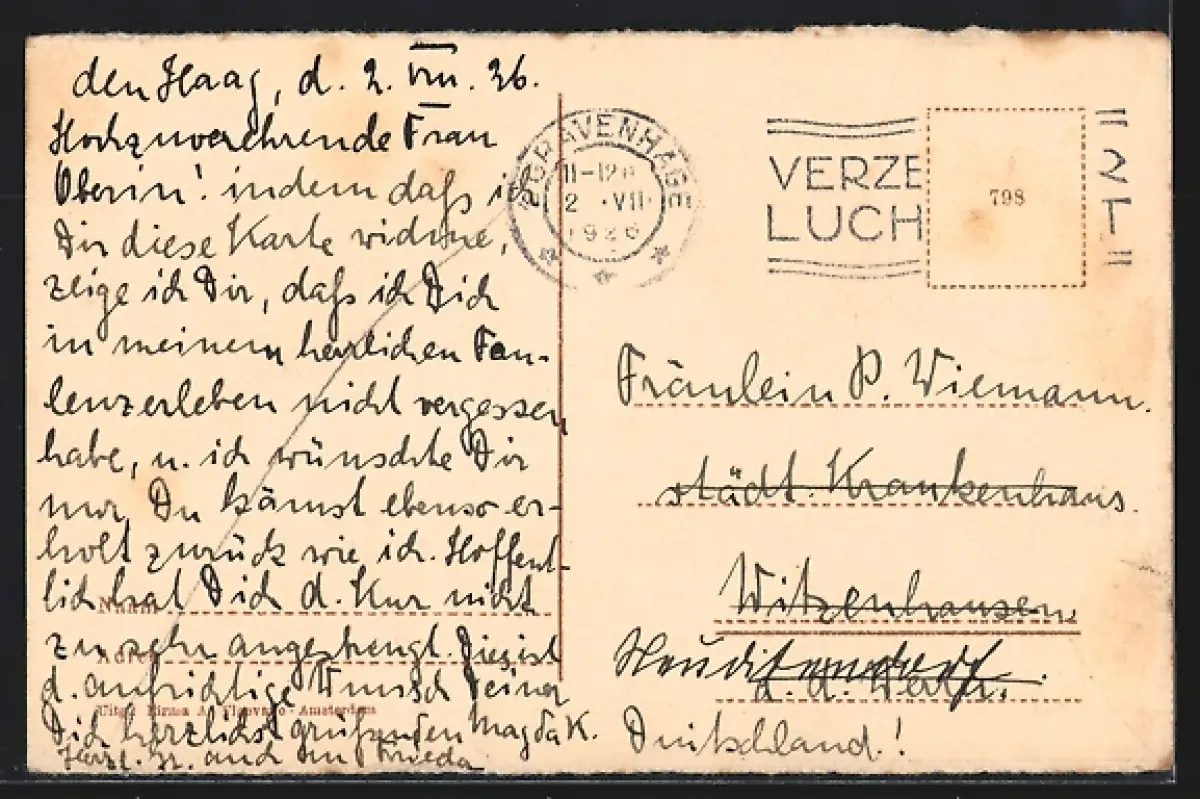 den Haag, d. 2. VIII. 26.
Hochzuverehrende Frau
Oberin! indem daß ich
Dir diese Karte widme,
zeige ich Dir, daß ich Dich
in meinem herrlichen Fau-
lenzerleben nicht vergessen
habe, u. ich wünschte Dir
nur, Du kämst ebenso er-
holt zurück wie ich. Hoffent-
lich hat Dich d. Kur nicht
zu sehr angestrengt. Dies ist
d. aufrichtige Wunsch Deiner
Dich herzlichst grüßenden Magda K.
Herzl. Gr. auch an Frieda
Naam
Adres
Uitg. Firma Amsterdam
'S GRAVENHAGE
11-12
2 .VII
1926
VERZE
LUCH
798
2
T
Fräulein P. Wiemann.
städt. Krankenhaus.
Witzenhausen.
a. d. Werra.
Deutschland.!